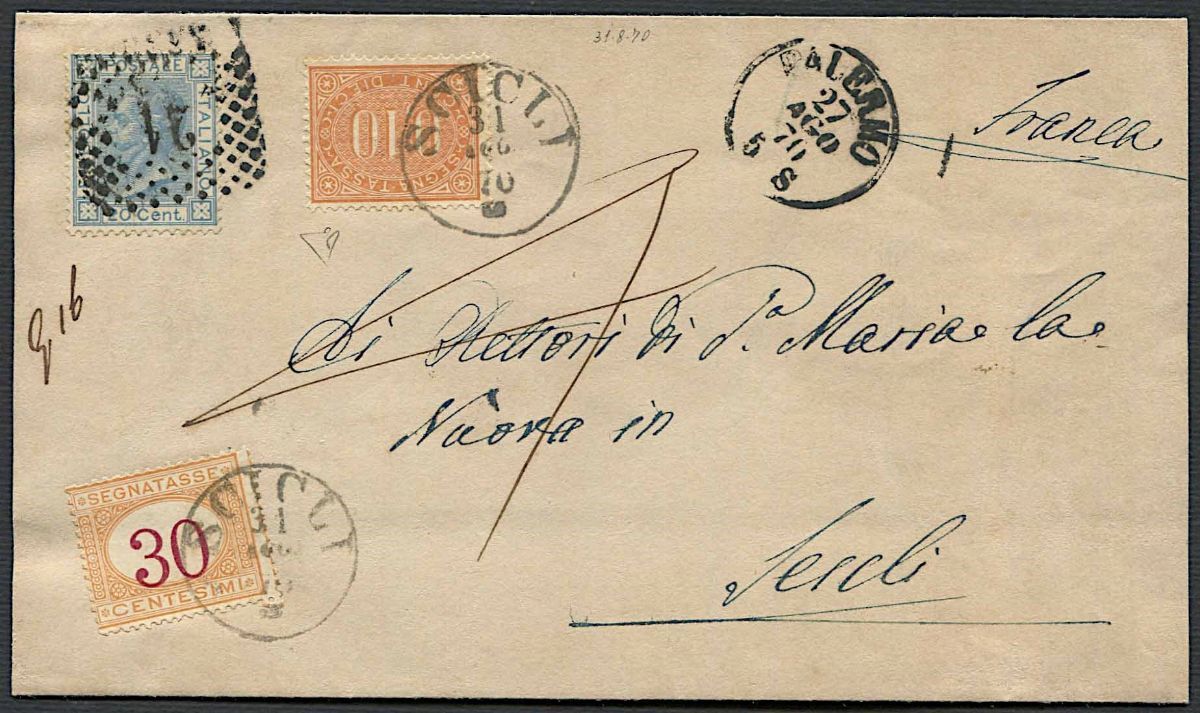 31.8.70
POSTALE
ITALIANO
20 Cent.
0,10
SEGNA-TASSA
SCICLI
31
AGO
70
PALERMO
27
AGO
70
5 S
Franca
g 16
Di Rettori di S.a Maria la
Nuova in
Scicli
SEGNATASSE
30
CENTESIMI
SCICLI
31
AGO
70